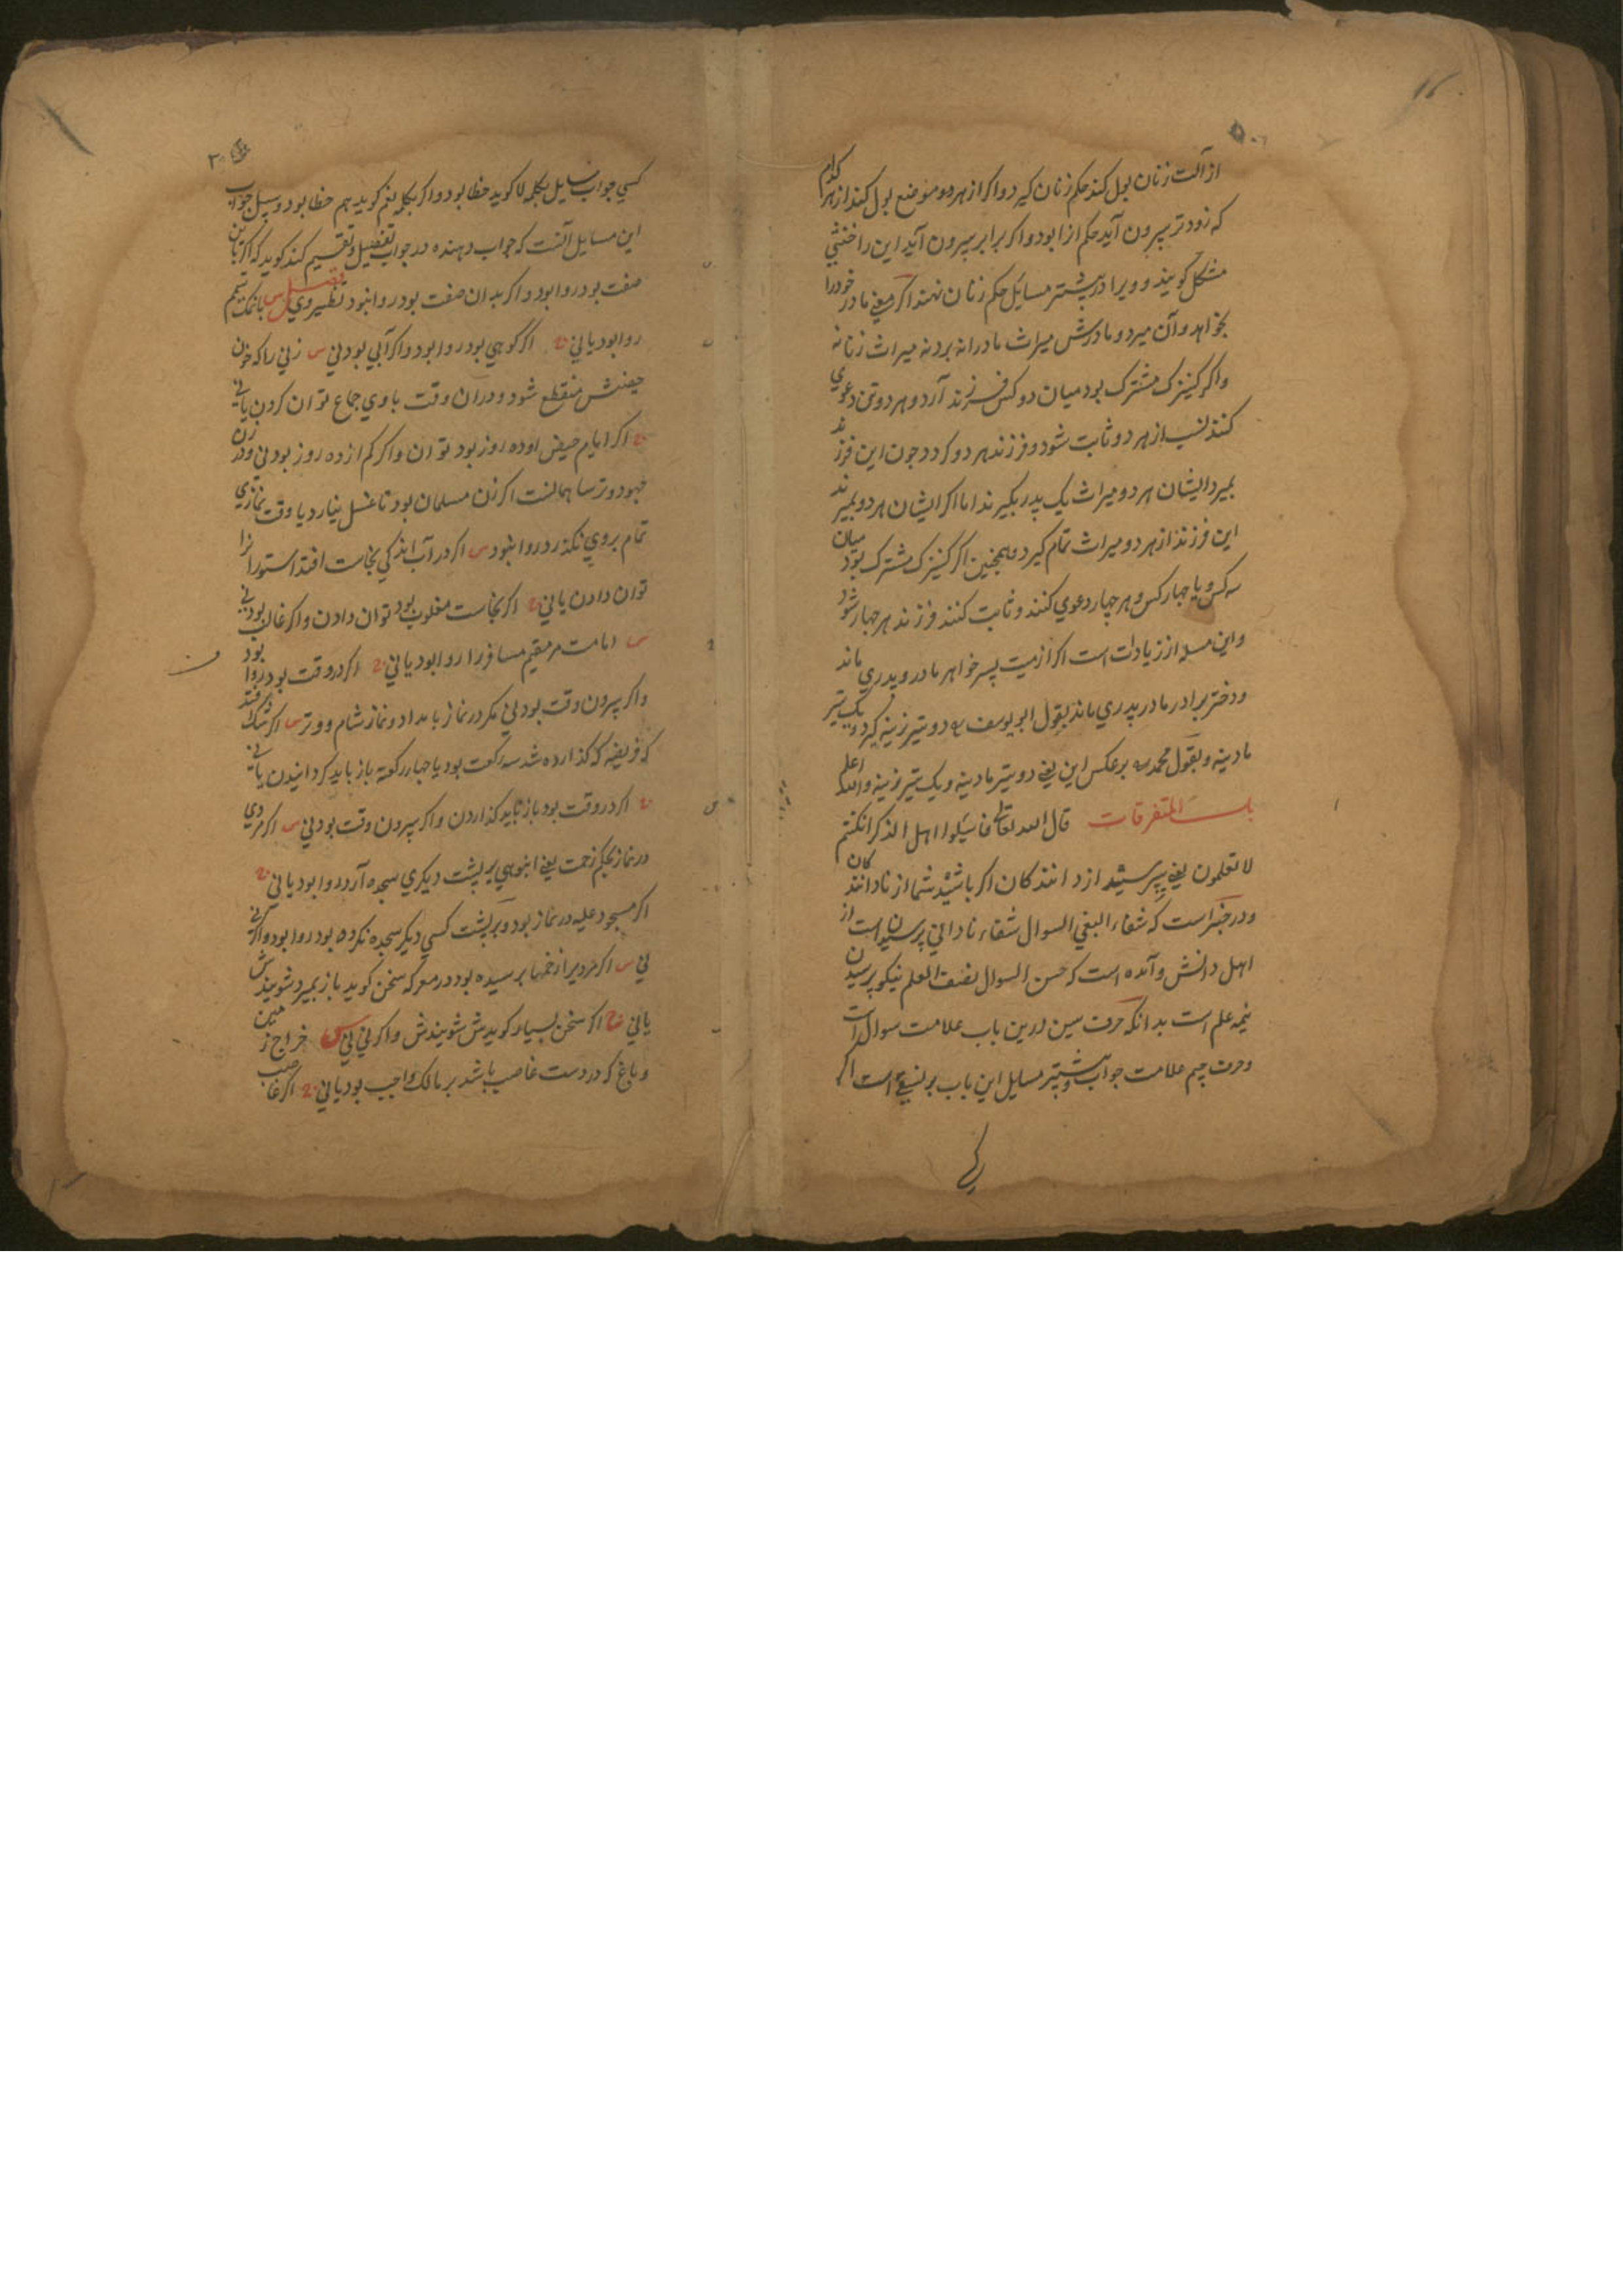 از آلت زنان بول کند حکم زنان گیرد و اگر از هر دو موضع بول کند از هر کدام
که زودتر بیرون آید حکم ازا بود و اگر برابر بیرون آید این را خنثی
مشکل گویند و ویرا در بیشتر مسایل حکم زنان نهند اگر مادر خود را
بخواهد و آن میرد و مادرش میراث مادرانه برد نه میراث زنانه
و اگر کنیزک مشترک بود میان دو کس فرزند آرد و هر دو تن دعوی
کنند نسب از هر دو ثابت شود و فرزند هر دو گردد چون این فرزند
بمیرد ایشان هر دو میراث یک پدر بگیرند اما اگر ایشان هر دو بمیرند
این فرزند از هر دو میراث تمام گیرد و همچنین اگر کنیزک مشترک بود میان
سه کس و یا چهار کس و هر چهار دعوی کنند و ثابت کنند فرزند هر چهار شود
و این مسله از زیادات است اگر از میت پسر خواهر مادر و پدری ماند
و دختر برادر مادر پدری ماند بقول ابو یوسف دو تیر نرینه گیرد و یک تیر
مادینه و بقول محمد بر عکس این یعنی دو تیر مادینه و یک تیر نرینه والله اعلم
باب المتفرقات قال الله تعالی فاسئلوا اهل الذکر ان کنتم
لا تعلمون یعنی بپرسید از دانندکان اگر باشید شما از نادانندکان
و در خبر است که شفاء البغی السوال شفاء نادانی پرسیدن است از
اهل دانش و آمده است که حسن السوال نصف العلم نیکو پرسیدن
نیمه علم است بدانکه حرف سین درین باب علامت سوال است
و حرف جیم علامت جواب و بیشتر مسایل این باب بر است اگر
کسی جواب مسایل بکلمه لا گوید خطا بود و اگر بکلمه نعم گوید هم خطا بود و سبیل جواب
این مسایل آنست که جواب دهنده در جواب تفصیل و تقسیم کند گوید که اگر باین
صفت بود روا بود و اگر بدان صفت بود روا نبود نظیر وی فصل س بانمک تیمم
روا بود یا نی ج اگر کوهی بود روا بود و اگر آبی بود نی س زنی را که خون
حیضش منقطع شود در آن وقت با وی جماع توان کردن یا نی
ج اگر ایام حیض او ده روز بود توان و اگر کم از ده روز بود نی و در زن
جهود و ترسا همانست اگر زن مسلمان بود تا غسل نیارد یا وقت نمازی
تمام بر وی نگذرد روا نبود س اگر در آب اندکی نجاست افتد استورانرا
توان دادن یا نی ج اگر نجاست مغلوب بود توان دادن و اگر غالب بود نی
س امامت مر مقیم مسافر را روا بود یا نی ج اگر در وقت بود روا بود
و اگر بیرون وقت بود نی مگر در نماز بامداد و نماز شام و وتر س اگر شک افتد
که فریضه که گذارده شد سه رکعت بود یا چهار رکعه باز باید گردانیدن یا نی
ج اگر در وقت بود باز باید گذاردن و اگر بیرون وقت بود نی س اگر مردی
در نماز بحکم زحمت یعنی انبوهی بر پشت دیگری سجده آرد روا بود یا نی ج
اگر مسجود علیه در نماز بود و بر پشت کسی دیگر سجده نکرده بود روا بود و اگر نی
نی س اگر مرد بود در معرکه سخن گوید باز بمیرد شویندش
یا نی ج اگر سخن بسیار گوید شویندش و اگر نی نی س خراج زمین
و باغ که در دست غاصب باشد بر مالک واجب بود یا نی ج اگر غاصب